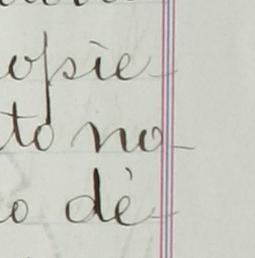 opie
to no
o dè